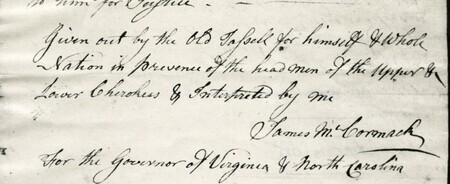 to him for Justice
Given out by the Old Tassell for himself & Whole
Nation in presence of the head men of the Upper &
Lower Cherokees & Interpreted by me
James McCormack
For the Governor of Virginia & North Carolina